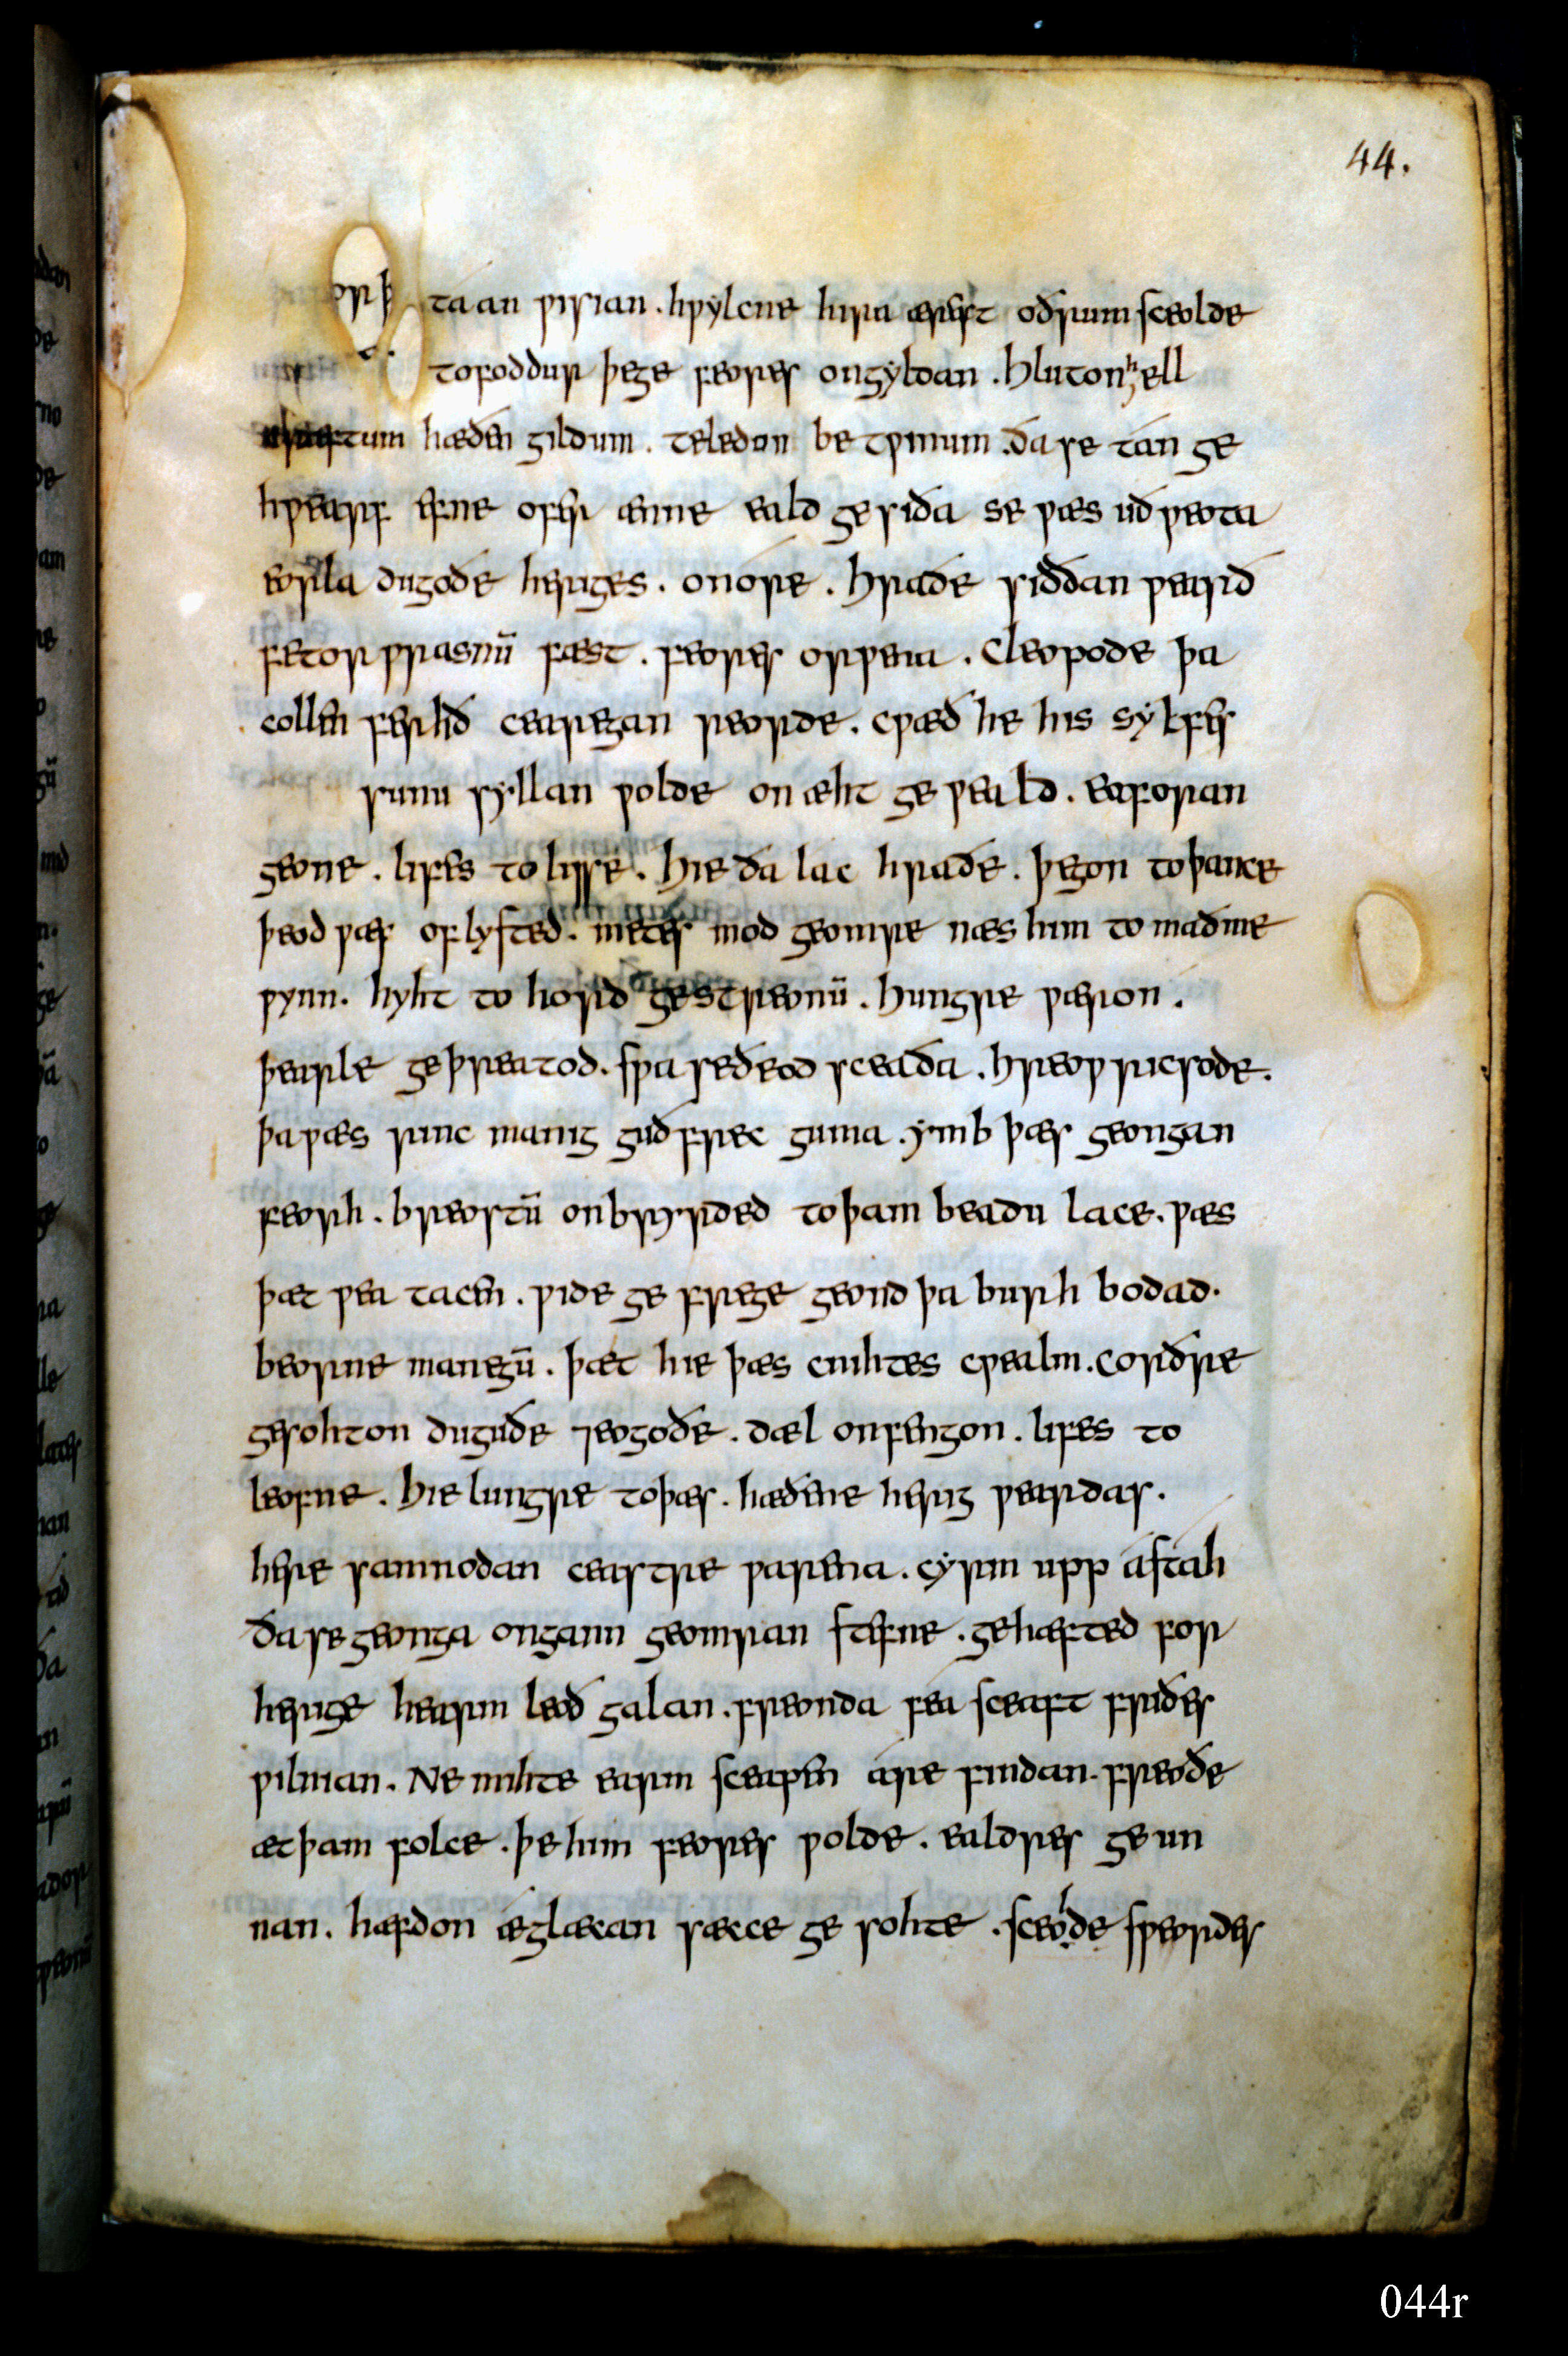 44.
ƿir þ taan ƿisian . hƿylcne hira ærest oðrum sceolde
to foddur þege feores ongyldan . hlutonhell
cræftum hæðen gildum . teledon betƿinum . ða se tan ge
hƿearf efne ofer ænne eald gesiða se ƿæs uðƿeota
eorla dugoðe heriges . onore . hraðe siððan ƿearð
fetor ƿrasnū fæst . feores orƿena . Cleopode þa
collen ferhð cearegan reorde . cƿæð he his sylfes
sunu syllan ƿolde on æht geƿeald . eaforan
geone . lifes to lisse . hie ða lac hraðe . þegon to þance
þeod ƿæs oflysted . metes mod geomre næs him to maðme
ƿynn . hyht to hord gestreonū . hungre ƿæron .
þearle geþreatod . sƿa se ðeod sceaða . hreoƿ ricsode .
þa ƿæs rinc manig guðfrec guma . ymb þæs geongan
feorh . breostū onbryrded to þam beadu lace . ƿæs
þæt ƿea tacen . ƿide gefrege geond þa burh bodad .
beorne manegū . þæt hie þæs cnihtes cƿealm . corðre
gesohton duguðe ⁊ eogoðe . dæl onfengon . lifes to
leofne . hie lungre to þæs . hæðene herig ƿeardas .
here samnodan ceastre ƿarena . cyrm upp astah
ða se geonga ongann geomran stefne . gehæfted for
herige hearm leoð galan . freonda feasceaft friðes
ƿilnian . Ne mihte earm sceapen are findan . freoðe
æt þam folce . þe him feores ƿolde . ealdres geun
nan . hæfdon æglæcan sæcce gesohte . sceolde sƿeordes
044r